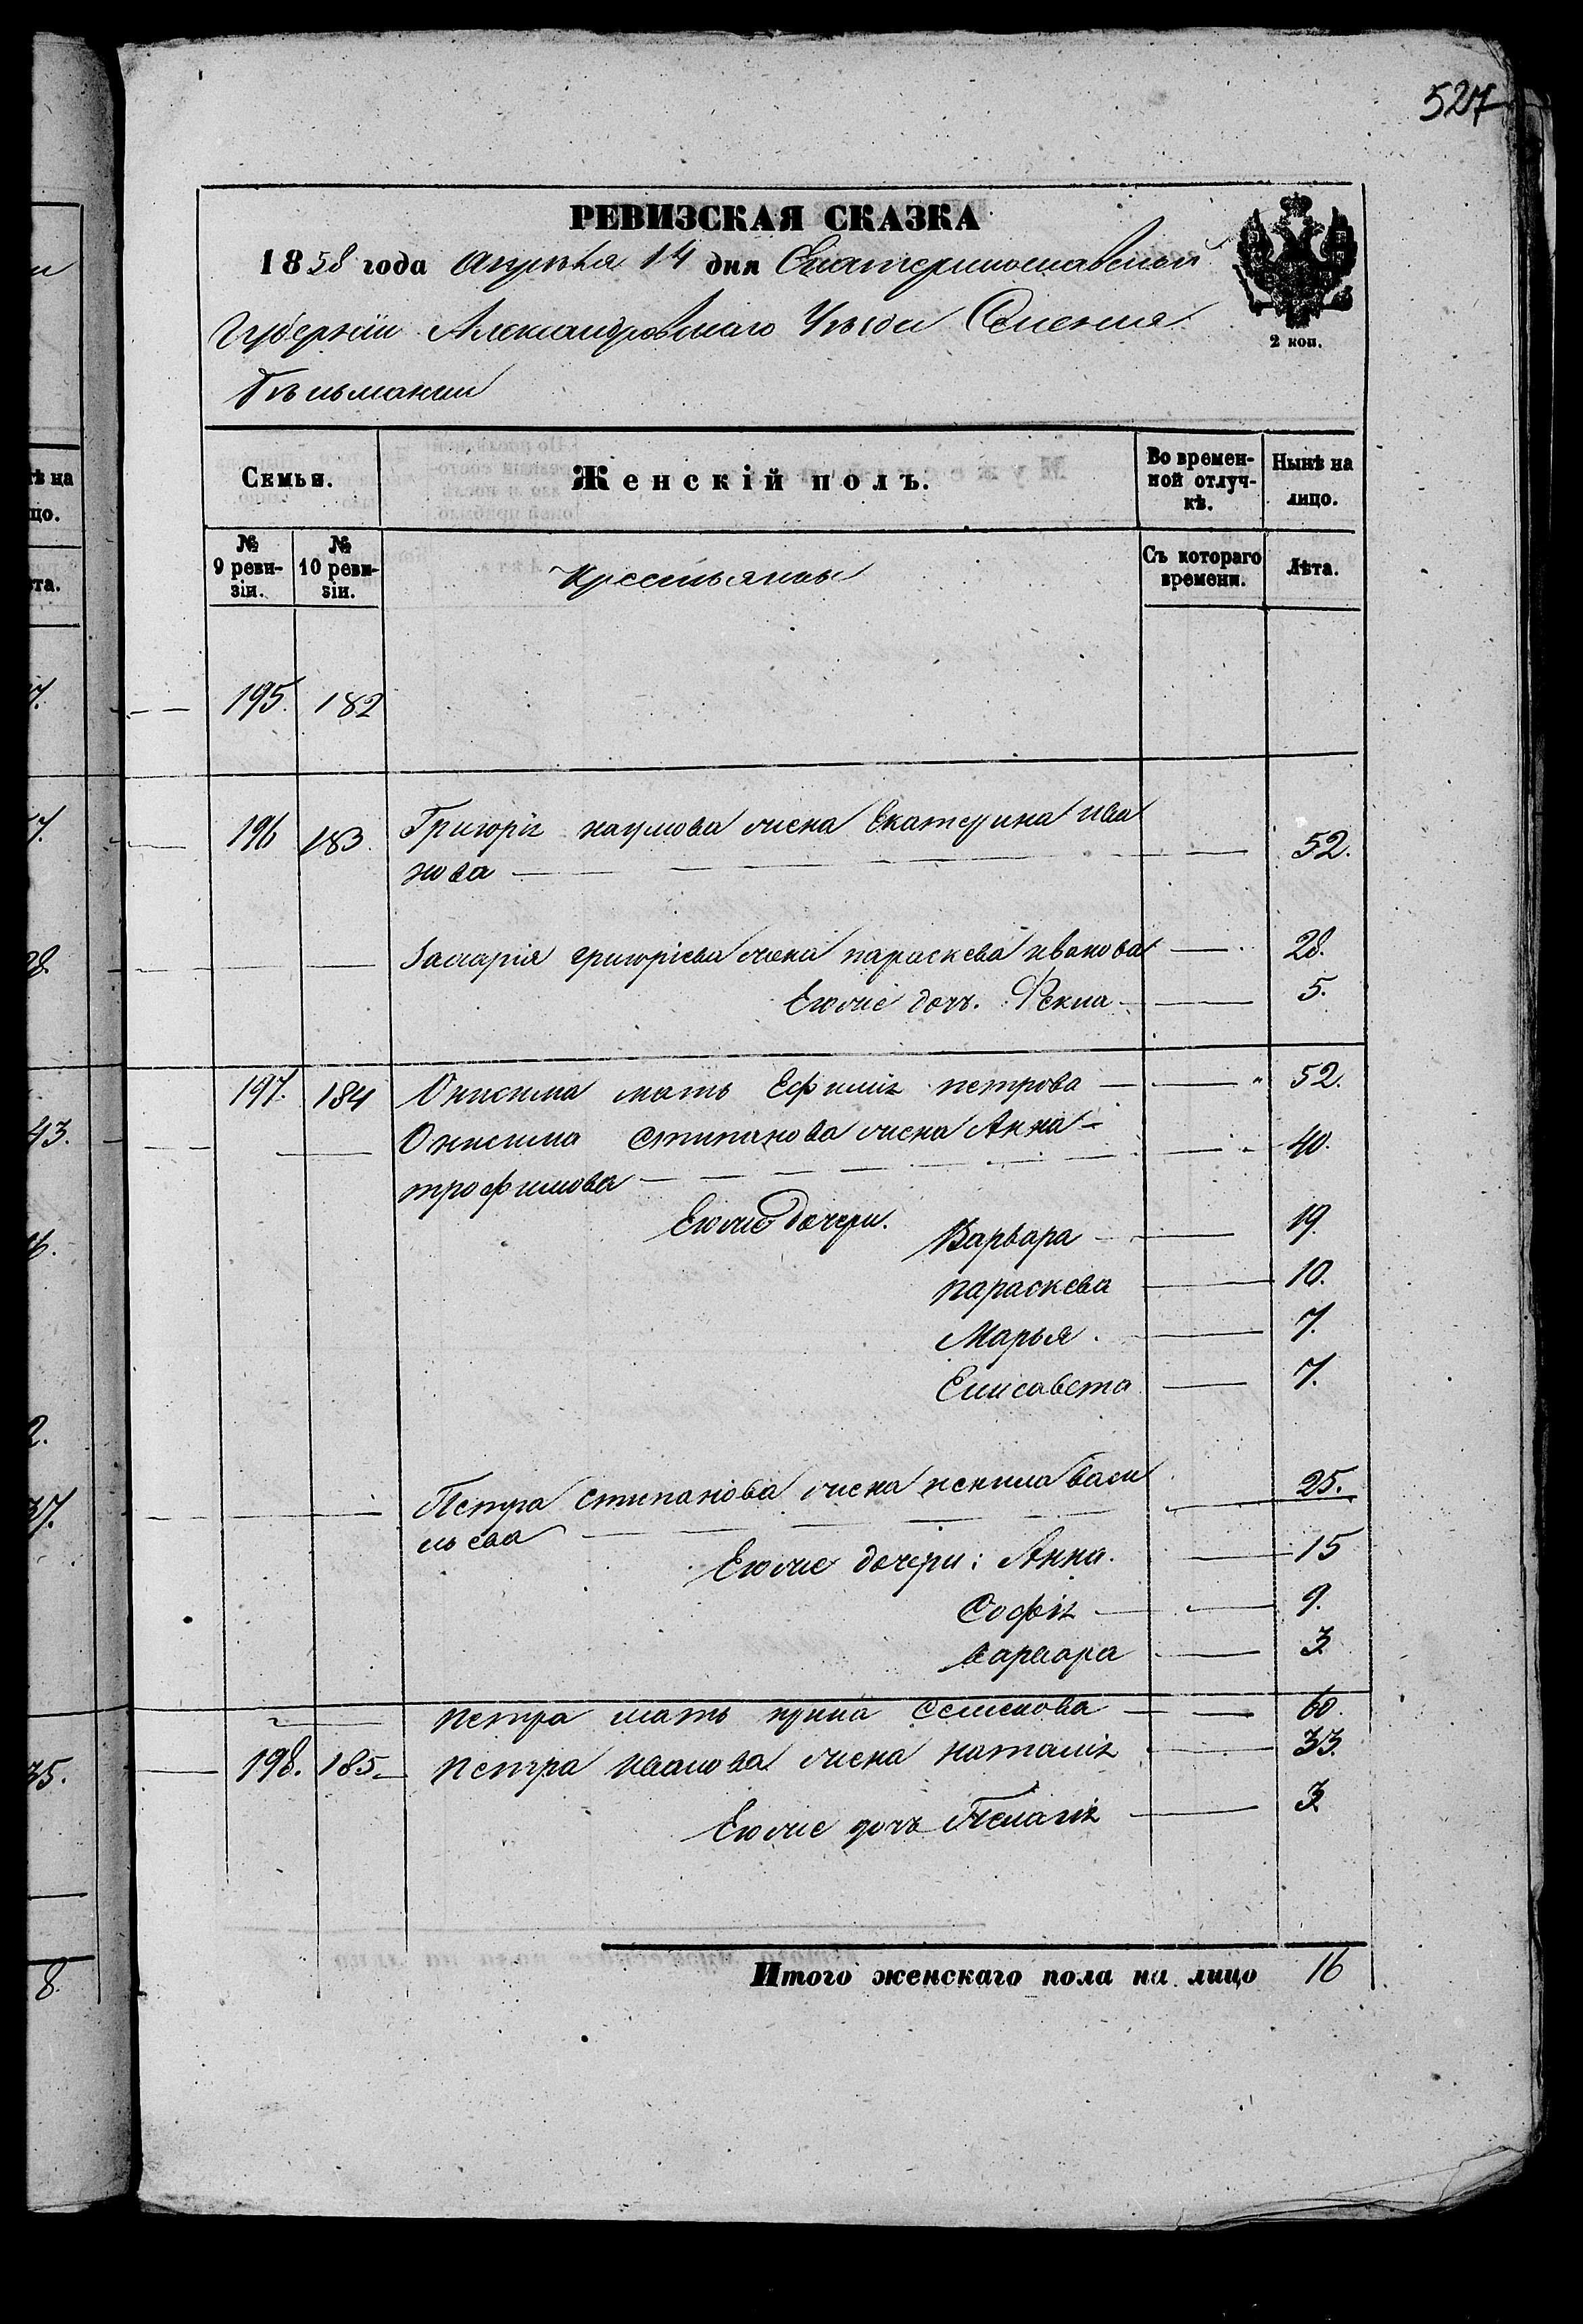 527
РЕВИЗСКАЯ СКАЗКА
1858 года Апрѣля 14 дня Екатеринославской
2 коп.
Губерніи Александровскаго Уѣзда Селения
Бѣльманки
Семьи.
Женскій полъ.
Во времен-
ной отлуч-
кѣ.
Нынѣ на
лицо.
№
9 реви-
зіи.
№
10 реви-
зіи.
Крестьянъ
Съ котораго
времени.
Лѣта.
195. 182
196 183. Григорія наумова жена Екатерина ива
нова 52.
Захарія григоріева жена параскева иванова 28.
Егоже дочь. Фекла 5.
197. 184 Онисима мать Ефимія петрова 52.
Онисима стипанова жена Анна 40.
трофимова
Егоже дочери. Варвара 19.
параскева 10.
Марья. 7.
Елисавета 7.
Петра стипанова жена васи 25.
льева
Егоже дочери: Анна. 15
Софія 9.
варвара 3
петра мать ирина семенова 60.
198. 185 петра иванова жена наталія 33.
Егоже дочь Пелагія 3
Итого женскаго пола на лицо 16